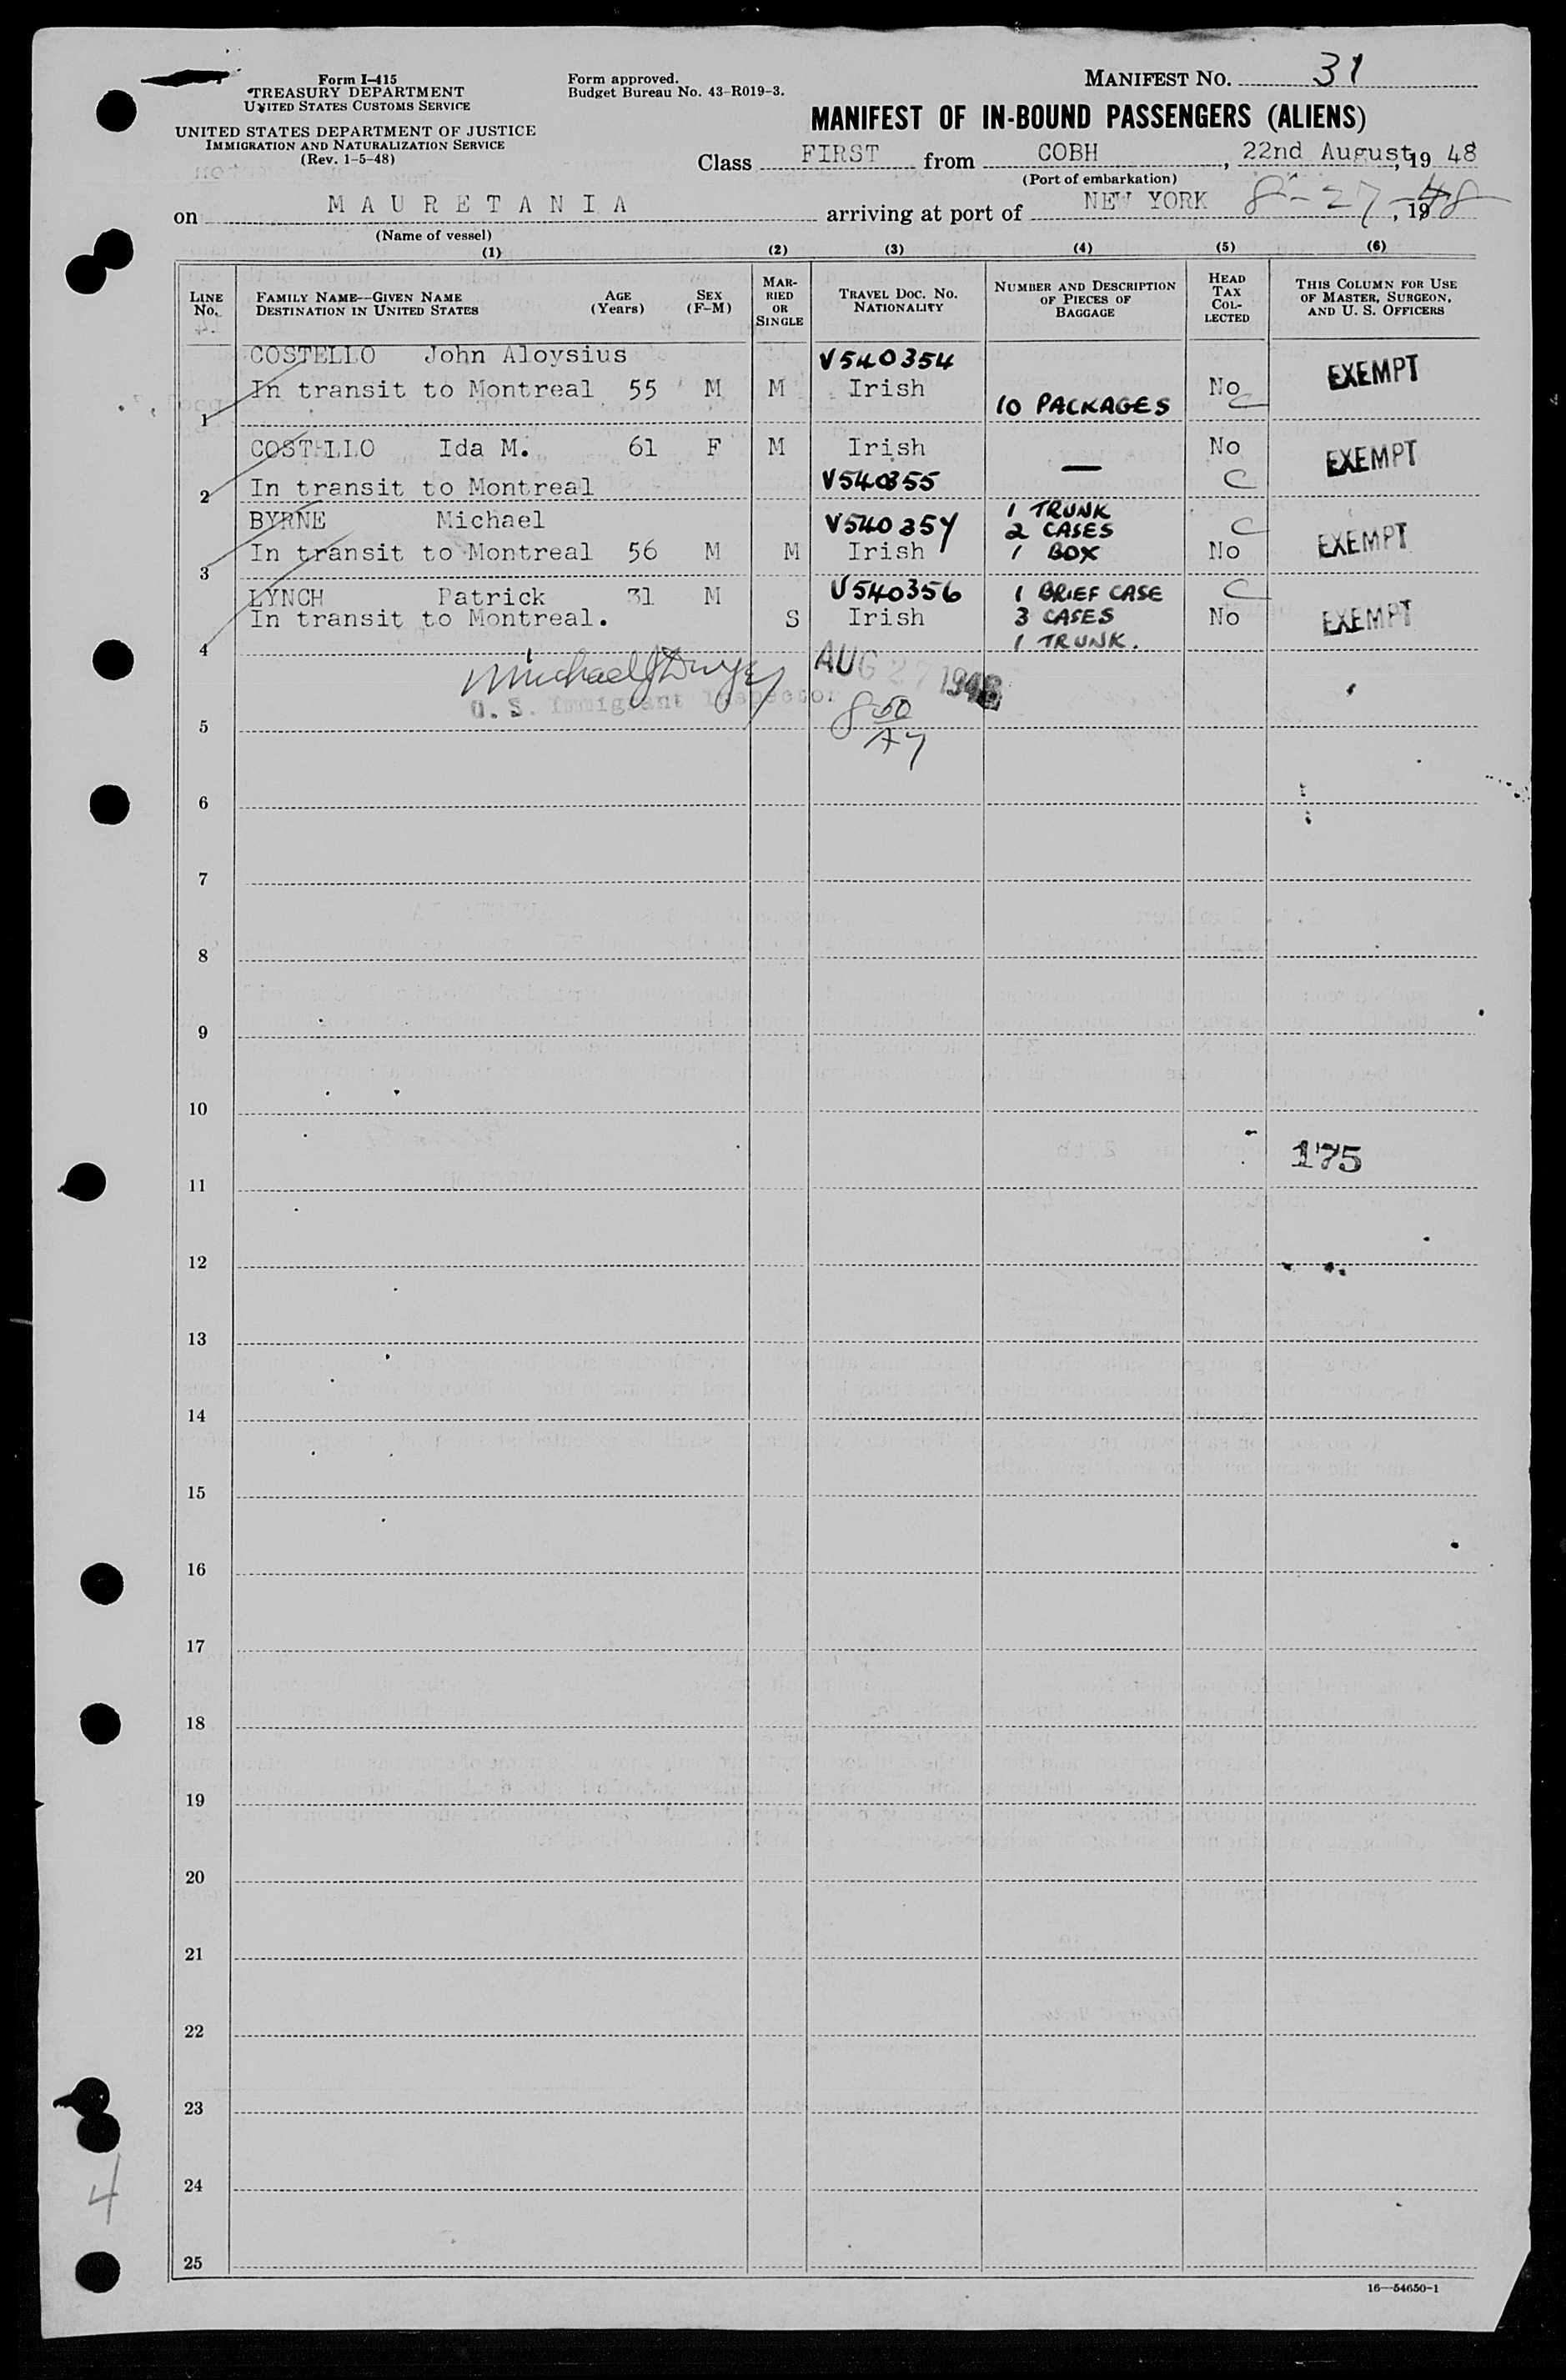 Form I-415
TREASURY DEPARTMENT
UNITED STATES CUSTOMS SERVICE
UNITED STATES DEPARTMENT OF JUSTICE
IMMIGRATION AND NATURALIZATION SERVICE
(Rev. 1-5-48)
Form approved.
Budget Bureau No. 43-R019-3.
MANIFEST NO. 31
MANIFEST OF IN-BOUND PASSENGERS (ALIENS)
Class FIRST from COBH, 22nd August, 19 48
(Port of embarkation)
on MAURETANIA arriving at port of NEW YORK 8-27-48, 19
(Name of vessel)
(1) (2) (3) (4) (5) (6)
LINE NO. FAMILY NAME—GIVEN NAME DESTINATION IN UNITED STATES AGE (Years) SEX (F-M) MARRIED OR SINGLE TRAVEL DOC. NO. NATIONALITY NUMBER AND DESCRIPTION OF PIECES OF BAGGAGE HEAD TAX COLLECTED THIS COLUMN FOR USE OF MASTER, SURGEON, AND U. S. OFFICERS
COSTELLO John Aloysius V540354
In transit to Montreal 55 M M Irish No EXEMPT
1 10 PACKAGES C
COSTELLO Ida M. 61 F M Irish — No EXEMPT
2 In transit to Montreal V540355 C
BYRNE Michael V540357 1 TRUNK
2 CASES C
3 In transit to Montreal 56 M M Irish 1 BOX No EXEMPT
LYNCH Patrick 31 M V540356 1 BRIEF CASE C
In transit to Montreal. S Irish 3 CASES No EXEMPT
4 1 TRUNK.
Michael J Dwyer AUG 27 1948
U. S. Immigrant Inspector
5
6
7
8
9
10
175
11
12
13
14
15
16
17
18
19
20
21
22
23
24
4
25
16—54650-1